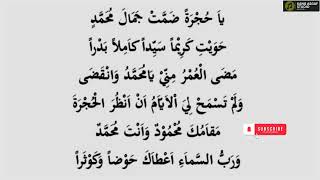 ياَ حُجْرَةً ضَمَّتْ جَمَالَ مُحَمَّدٍ
حَوَيْتِ كَرِيْمًا سَيِّداً كَامِلاً بَدْراً
مَضَى الْعُمْرُ مِنِّيْ يَامُحَمَّدُ وَانْقَضَى
وَلَمْ تَسْمَحْ لِيَ الْاَيَّامُ اَنْ اَنْظُرَ الْحُجْرَةَ
مَقَامُكَ مَحْمُوْدٌ وَاَنْتَ مُحَمَّدٌ
SUBSCRIBE
وَرَبُّ السَّمَاءِ اَعْطَاكَ حَوْضاً وَكَوْثَراً